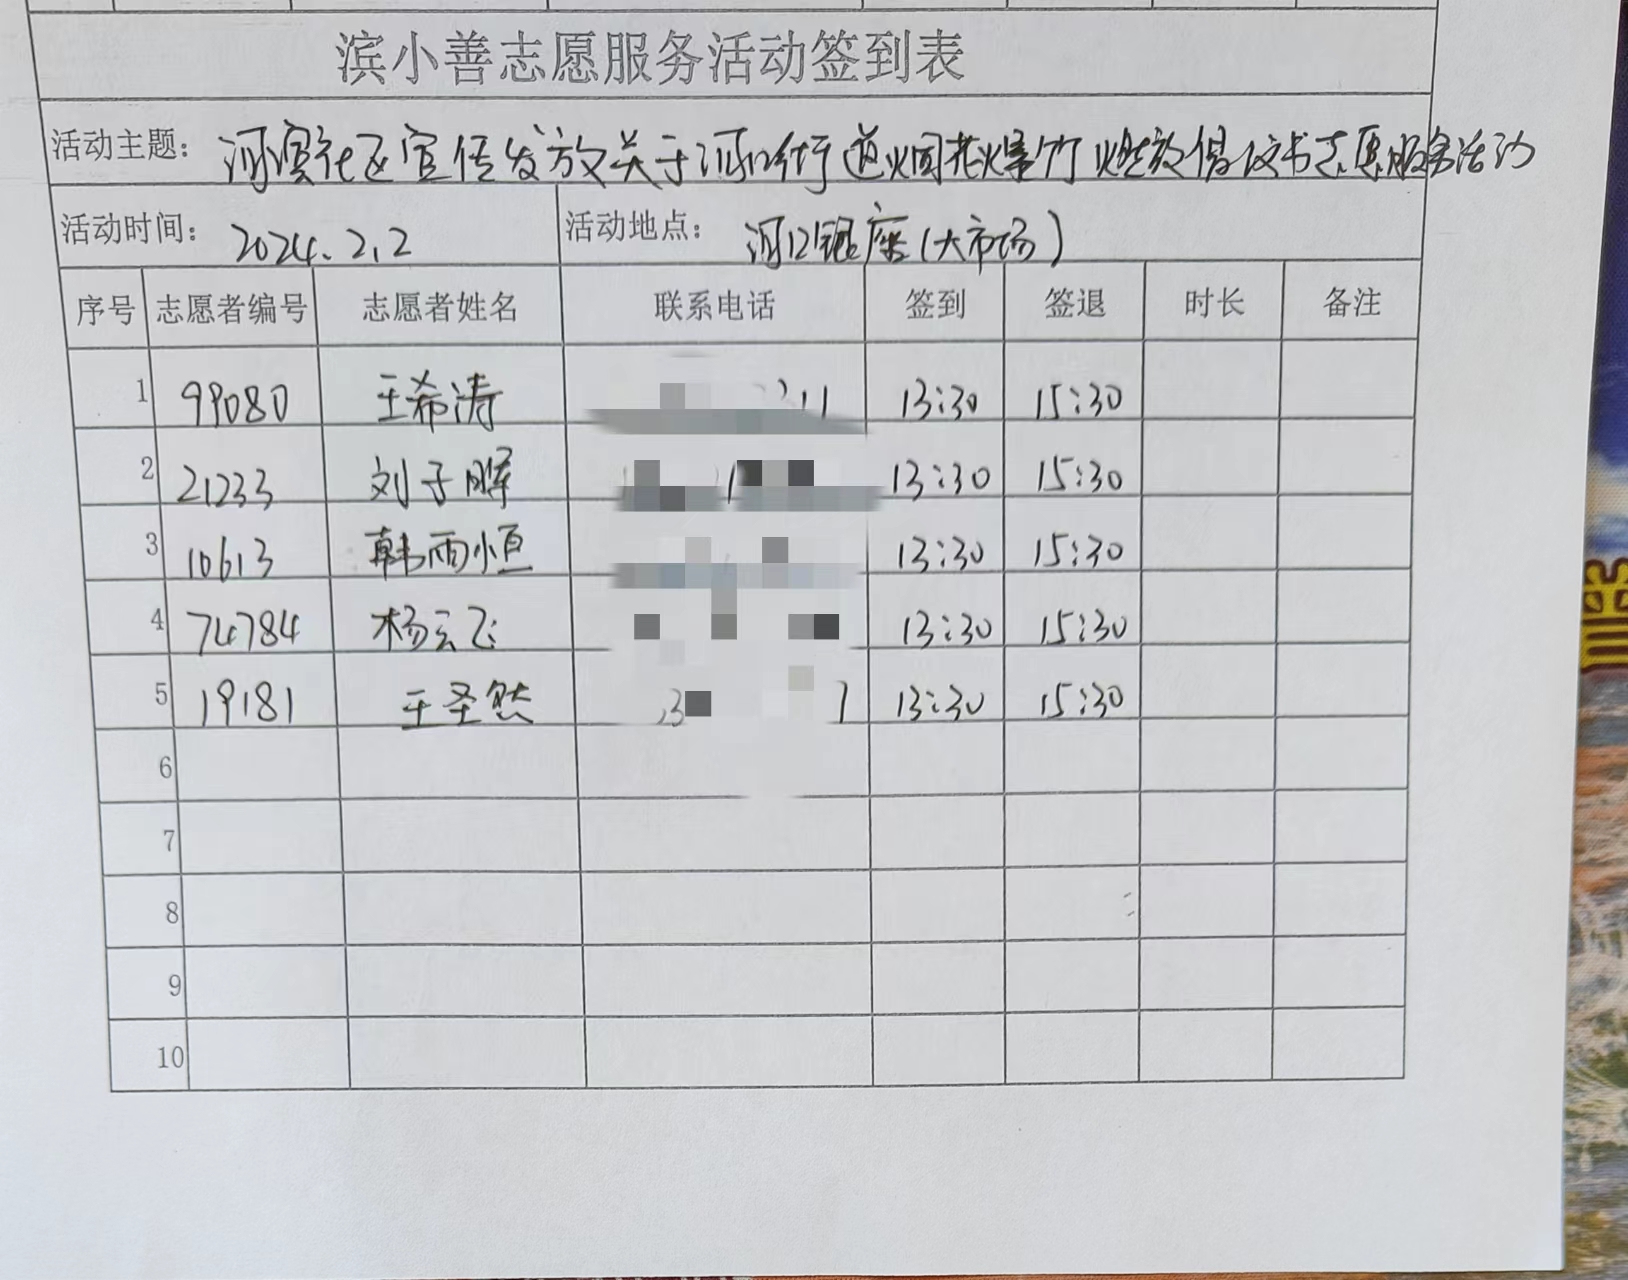 滨小善志愿服务活动签到表
活动主题: 河滨社区宣传发放关于河口街道烟花爆竹燃放倡议书志愿服务活动
活动时间: 2024.2.2 活动地点: 河口银座(大市场)
序号 志愿者编号 志愿者姓名 联系电话 签到 签退 时长 备注
1 99080 王希涛 13:30 15:30
2 21233 刘子晖 13:30 15:30
3 10613 韩雨恒 13:30 15:30
4 74784 杨云飞 13:30 15:30
5 19181 王圣然 13:30 15:30
6
7
8
9
10